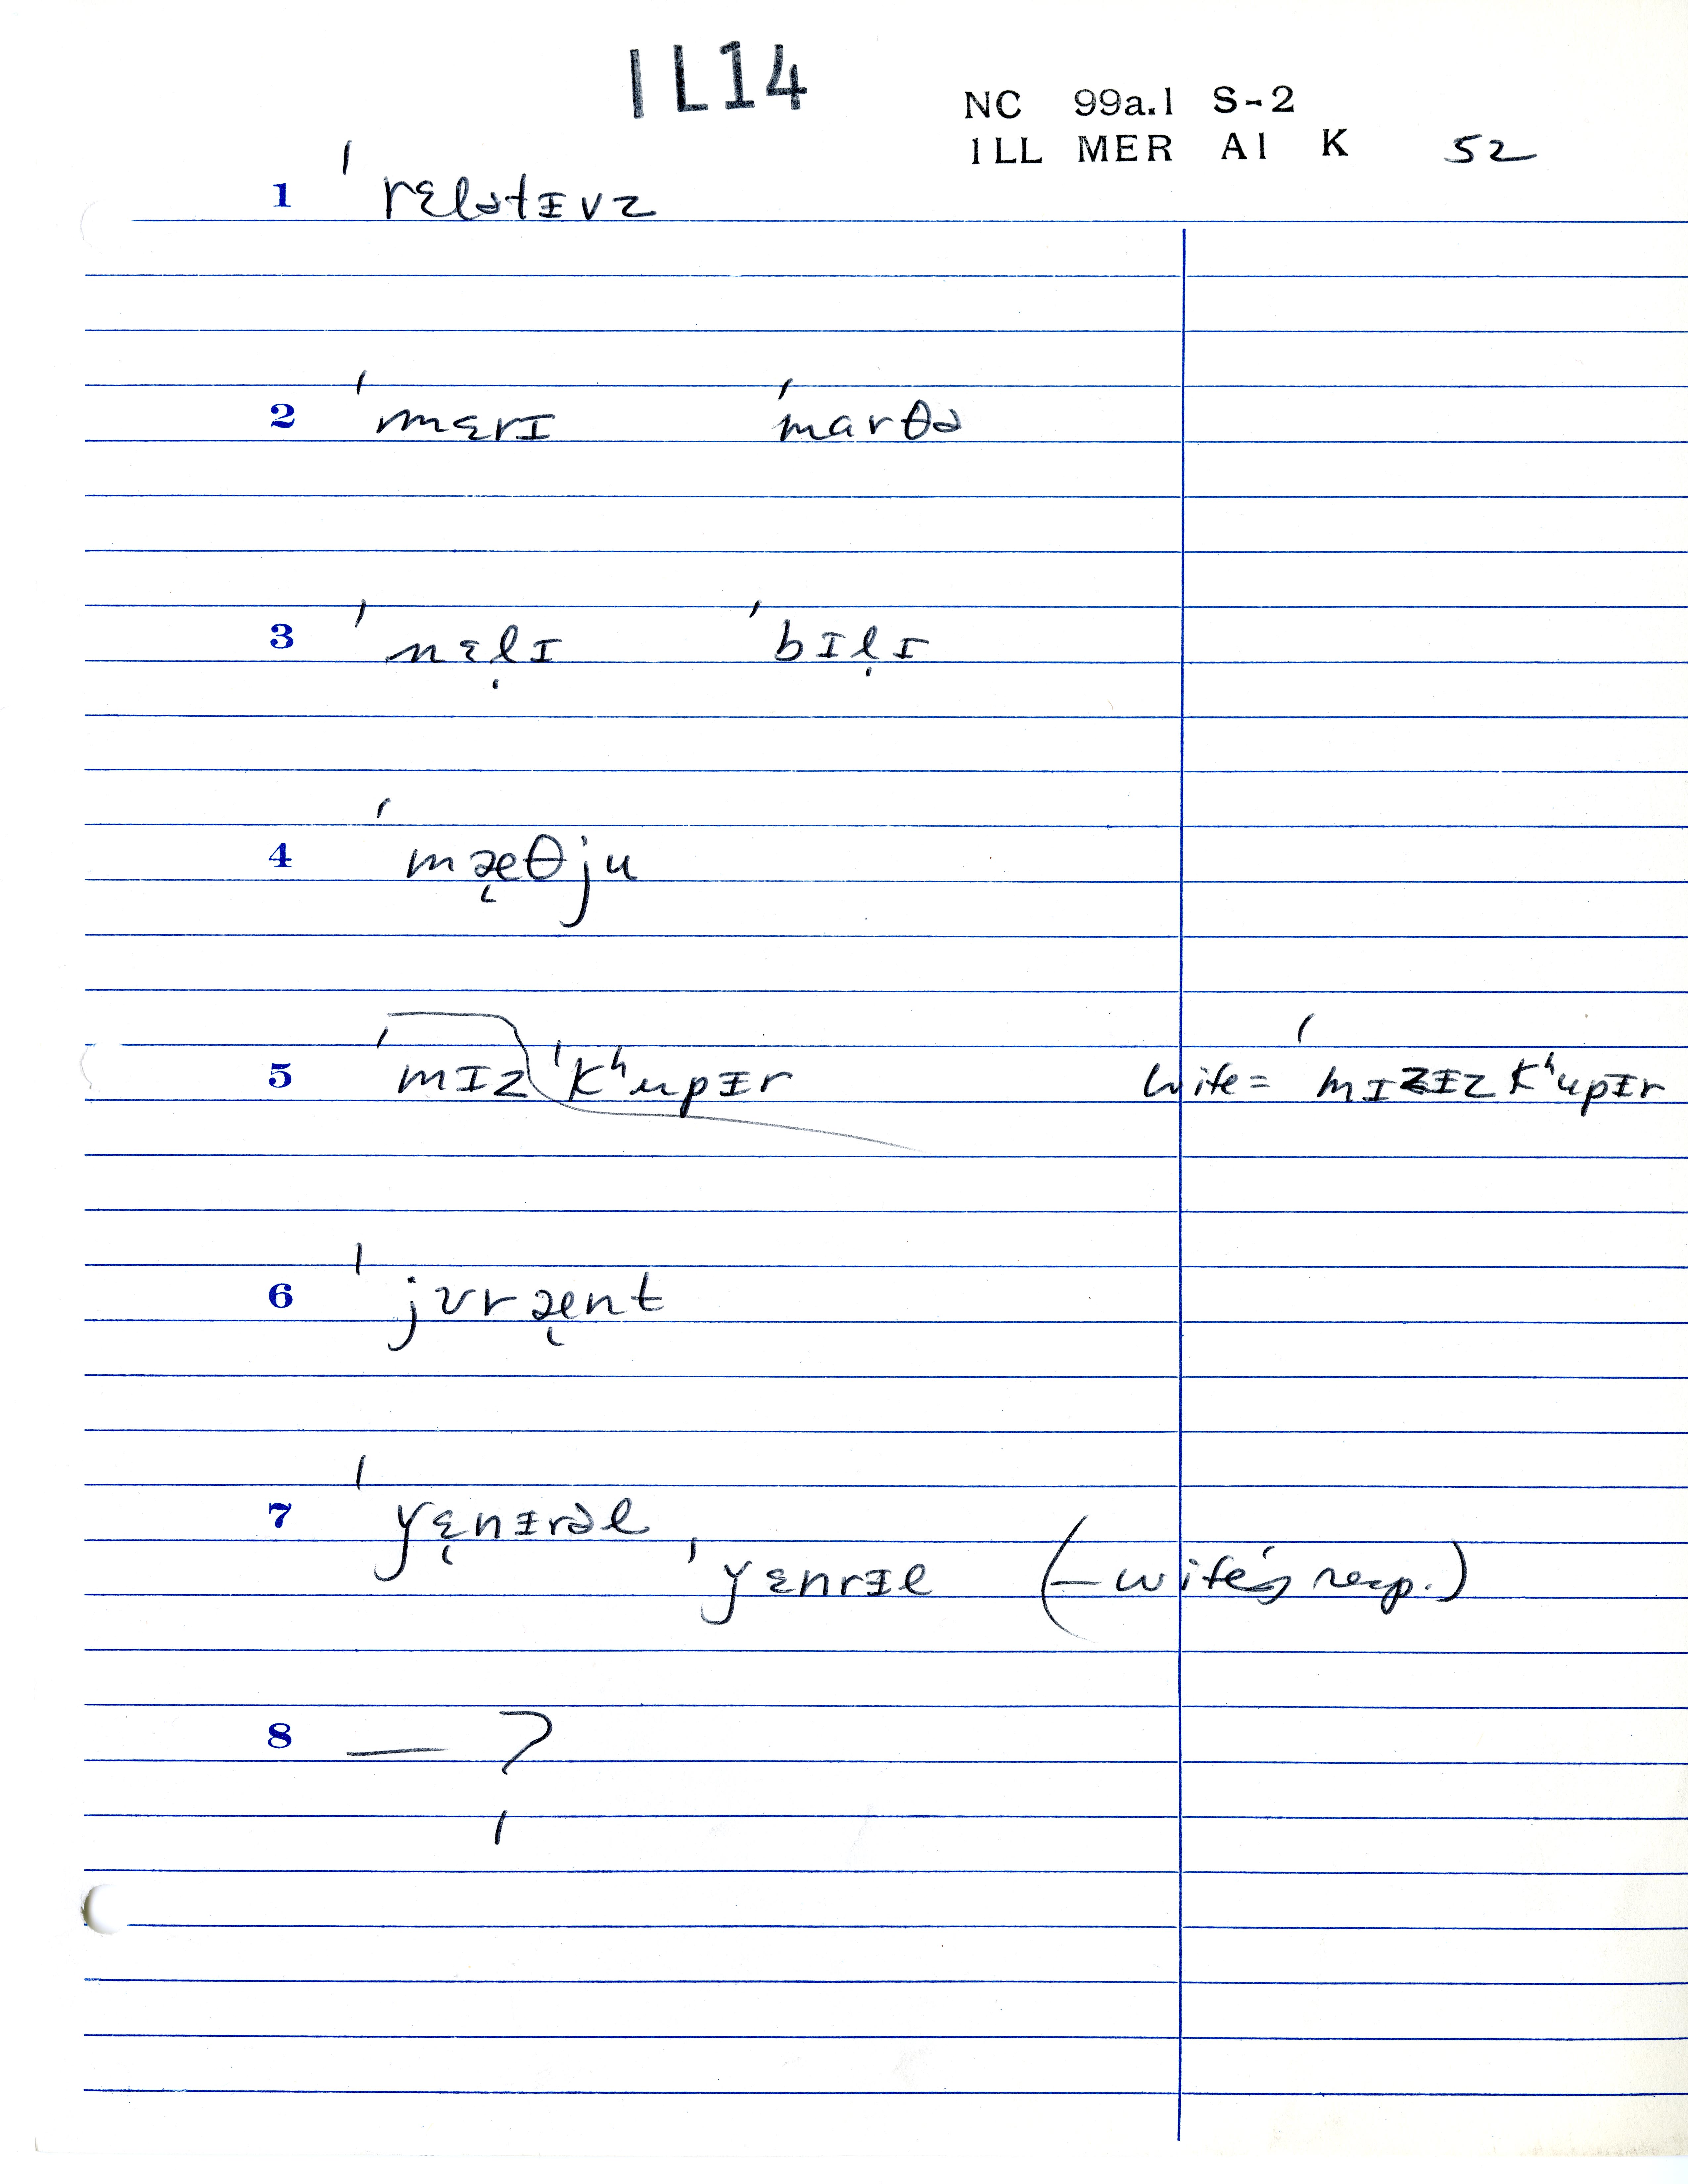 1L14
NC 99a.1 S-2
1LL MER A1 K 52
1 ' rɛlətɪ̵vz
2 ' mɛrɪ 'marθə
3 ' nɛl̩ɪ 'bɪl̩ɪ
4 ' mæ̨θju
5 'mɪz 'Kʰupɪ̵r wife = ' mɪzɪ̵z Kʰupɪ̵r
6 ' jʊræ̨nt
7 ' ɏɛ̨nɪ̵rəl
'ɏɛnrɪ̵l (— wife's resp.)
8 — ?